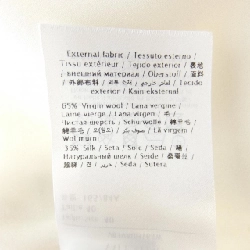 External fabric / Tessuto esterno /
Tissu extérieur / Tejido exterior / 表地
/ внешний материал / Oberstoff / 面料
/ 外部布料 / / Tecido
exterior / Kain eksternal
65% Virgin wool / Lana vergine /
Laine vierge / Lana virgen / 毛 /
Чистая шерсть / Schurwolle / 绵羊毛 /
綿羊毛 / / Lã virgem /
Wol murn
35% Silk / Seta / Soie / Seda / 絹 /
Натуральный шелк / Seide / 桑蚕丝 /
/ 견 / / Seda / Sutera